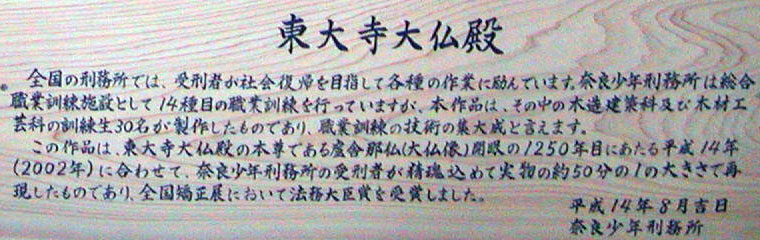 東大寺大仏殿
全国の刑務所では、受刑者が社会復帰を目指して各種の作業に励んでいます。奈良少年刑務所は総合
職業訓練施設として14種目の職業訓練を行っていますが、本作品は、その中の木造建築科及び木材工
芸科の訓練生30名が製作したものであり、職業訓練の技術の集大成と言えます。
この作品は、東大寺大仏殿の本尊である盧舎那仏(大仏像)開眼の1250年目にあたる平成14年
(2002年)に合わせて、奈良少年刑務所の受刑者が精魂込めて実物の約50分の1の大きさで再
現したものであり、全国矯正展において法務大臣賞を受賞しました。
平成14年8月吉日
奈良少年刑務所